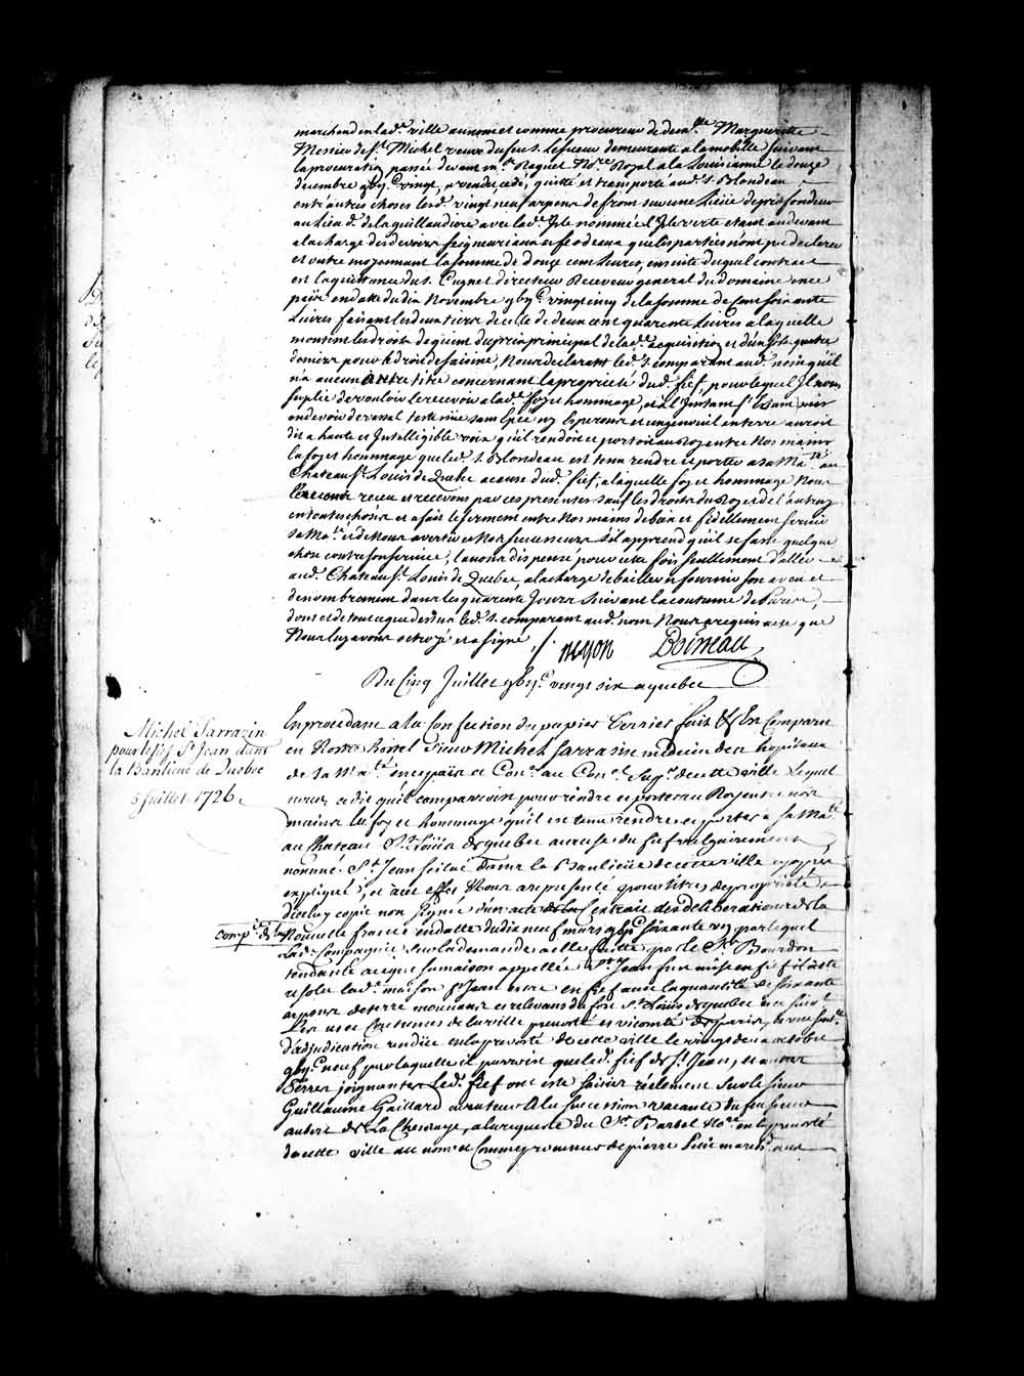 marchand en lad.e ville au nom et comme procureur de dem.lle Marguerite
Messier de S.t Michel veuve du feu s. Lesueur demeurante a la mobille suivant
la procuration passée devant m.e Raguet No.re Royal a la Louisianne le douze
decembre gbjc vingt, a vendu, cedé, quitté et transporté aud. s. Blondeau
entr'autres choses lesd. vingt neuf arpens de front sur une Lieüe de profondeur
au lieu d. de la guillaudiere avec lad.e Isle nommée l'Isle verte etant au devant
a la charge des devoirs seigneuriaux et feodeaux que les parties n'ont pu declarer
et outre moyennant la somme de douze cent livres, ensuite duquel contract
est la quittance du s. Cugnet directeur Receveur general du domaine en ce
païs en datte du dix Novembre gbjc vingt cinq de la somme de Cent soixante
Livres faisant les deux tiers de celle de deux cent quarente Livres a laquelle
montent les droits de quint du prix principal de lad.e acquisition et d'un sols quatre
deniers pour le droit de saisine, Nous declarant led. s. comparant aud. nom qu'il
n'a aucun autre titre concernant la proprieté dud. fief, pour lequel Il nous
suplie de vouloir le recevoir a lad.e foy et hommage, et a l'Instant s'Estant mis
en devoir de vassal teste nüe sans Epée ny Esperons et un genouil en terre auroit
dit a haute et Intelligible voix qu'il rendoit et portoit au Roy entre Nos mains
la foy et hommage que led. s. Blondeau est tenu rendre et porter a sa Ma.té au
Chateau S.t Louis de Quebec a cause dud. fief, a laquelle foy et hommage Nous
l'avons receu et recevons par ces presentes sauf les droits du Roy et de l'autruy
en toutes choses et a fait le serment entre Nos mains de bien et fidellement servir
sa Ma.té et de Nous avertir et Nos successeurs s'il apprend qu'il se fasse quelque
chose contre son service, l'avons dispensé pour cette fois seullement d'aller
aud. Chateau S.t Louis de Quebec, a la charge de bailler et fournir son aveu et
denombrement dans les quarente Jours suivant la coutume de Paris,
dont et de tout ce que dessus led. s. comparant aud. nom Nous a requis acte que
Nous luy avons octroyé et a signé /.
neyon Boimeau
Du Cinq Juillet gbjc vingt six a quebec
Michel Sarrazin
pour le fief St Jean dans
la Banlieüe de Quebec
5 Juillet 1726.
En procedant a la Confection du papier Terrier fait &c Est Comparu
en Nostre hôtel Sieur Michel Sarrasin medecin des hopitaux
de sa Ma.té en ce païs et Con.er au Con.el Sup.r de cette ville Lequel
nous a dit qu'il comparoist pour rendre et porter au Roy entre nos
mains la foy et hommage qu'il est tenu rendre et porter a sa Ma.té
au Chateau S.t Loüis de quebec a cause du fief vulgairement
nommé S.t Jean scitué dans la Banlieüe de cette ville cy apres
expliqué, et a cet effet Nous a representé pour titres de proprieté
d'iceluy copie non signée d'un acte des extrait des deliberations de la
comp.ie de la
Nouvelle france en datte du dix neuf mars gbjc soixante un par lequel
lad. Compagnie sur la demande a elle faitte par le Sr Bourdon
tendante a ce que sa maison appellée S.t Jean fut mise en fief il a été
resolu lad.e maison S.t Jean estre en fief avec la quantité de soixante
arpens de terre mouvans et relevans du fort S.t Louis de quebec
Les us et Coutumes de la ville prevosté et vicomté de paris,
d'adjudication rendüe en la prevosté de cette ville le vingt deux octobre
gbjc neuf par laquelle il paroist que led. fief de S.t Jean, et autres
Terres joignantes led. fief ont este saisies réelement sur le sieur
Guillaume Gaillard curateur a la succession vacante du feu sieur
aubert de La Chenaye, a la requeste du S.r Barbel No.re en la prevosté
de cette ville au nom et Comme procureur de pierre